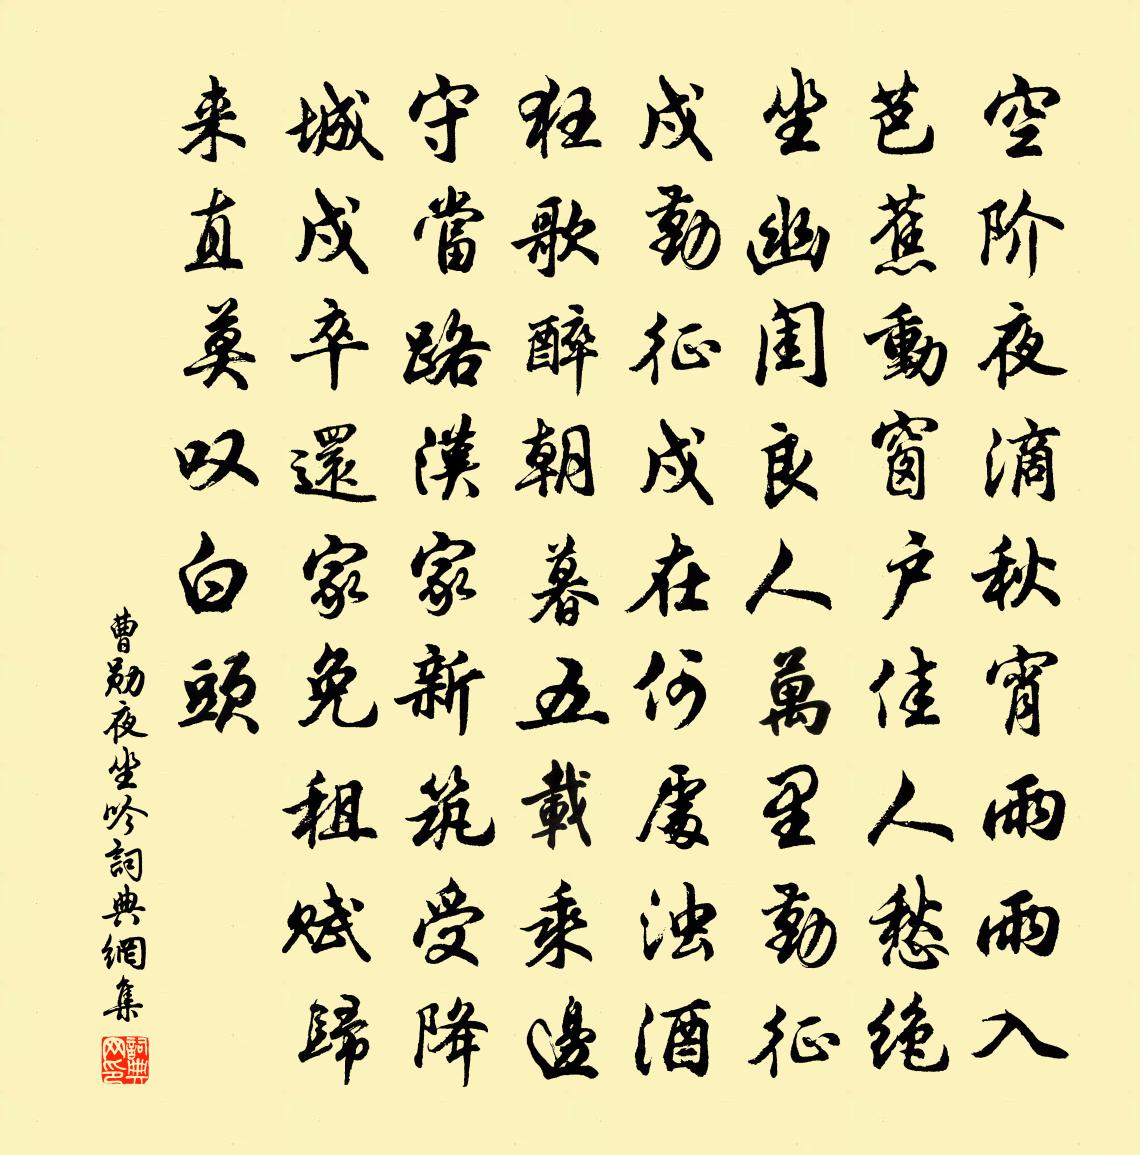 空阶夜滴秋宵雨雨入
芭蕉動窗户佳人愁绝
坐幽闺良人萬里勤征
戍勤征戍在何處浊酒
狂歌醉朝暮五載乘邊
守當路漢家新筑受降
城戍卒還家免租赋歸
来直莫叹白頭
曹勋夜坐吟詞典網集
詞典网印